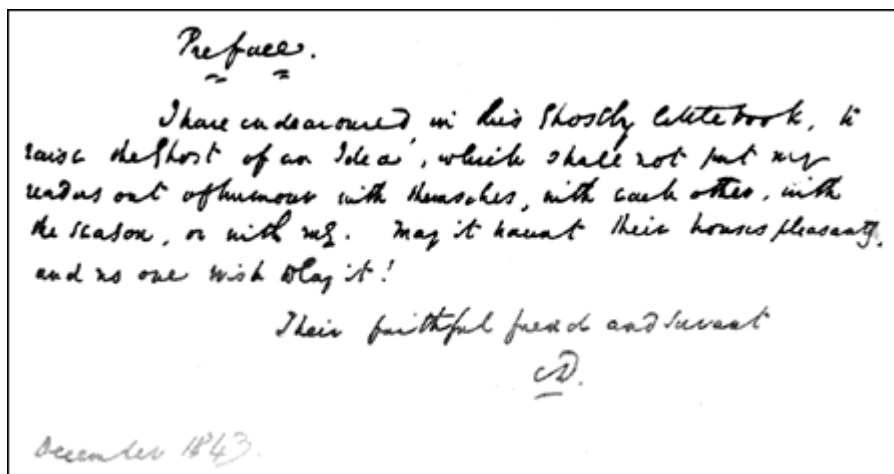 Preface.
I have endeavoured in this Ghostly little book, to
raise the Ghost of an Idea, which shall not put my
readers out of humour with themselves, with each other, with
the season, or with me. May it haunt their houses pleasantly,
and no one wish to lay it!
Their faithful friend and servant
CD.
December 1843.